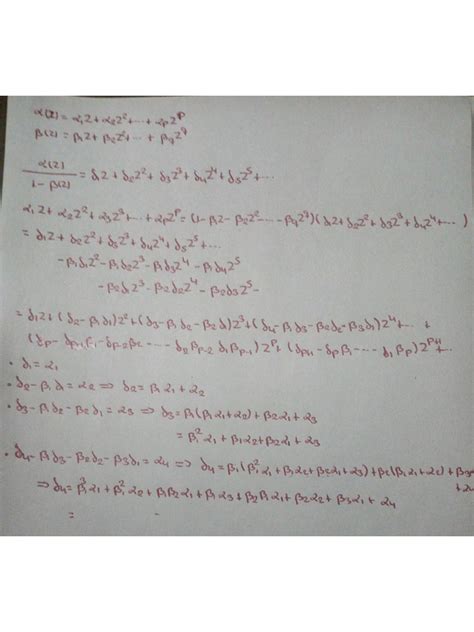 α(z) = α₁z + α₂z² + ... + αₚz^p
β(z) = β₁z + β₂z² + ... + β_q z^q
α(z) / (1 - β(z)) = δ₁z + δ₂z² + δ₃z³ + δ₄z⁴ + δ₅z⁵ + ...
α₁z + α₂z² + α₃z³ + ... + αₚz^p = (1 - β₁z - β₂z² - ... - β_q z^q)(δ₁z + δ₂z² + δ₃z³ + δ₄z⁴ + ...)
= δ₁z + δ₂z² + δ₃z³ + δ₄z⁴ + δ₅z⁵ + ...
- β₁δ₁z² - β₁δ₂z³ - β₁δ₃z⁴ - β₁δ₄z⁵
- β₂δ₁z³ - β₂δ₂z⁴ - β₂δ₃z⁵ -
= δ₁z + (δ₂ - β₁δ₁)z² + (δ₃ - β₁δ₂ - β₂δ₁)z³ + (δ₄ - β₁δ₃ - β₂δ₂ - β₃δ₁)z⁴ + ... +
(δₚ - δₚ₋₁β₁ - δₚ₋₂β₂ - ... - δ₂βₚ₋₂ δ₁βₚ₋₁)z^p + (δₚ₊₁ - δₚβ₁ - ... δ₁βₚ)z^(p+1)
• δ₁ = α₁
• δ₂ - β₁δ₁ = α₂ ⇒ δ₂ = β₁α₁ + α₂
• δ₃ - β₁δ₂ - β₂δ₁ = α₃ ⇒ δ₃ = β₁(β₁α₁ + α₂) + β₂α₁ + α₃
= β₁²α₁ + β₁α₂ + β₂α₁ + α₃
• δ₄ - β₁δ₃ - β₂δ₂ - β₃δ₁ = α₄ ⇒ δ₄ = β₁(β₁²α₁ + β₁α₂ + β₂α₁ + α₃) + β₂(β₁α₁ + α₂) + β₃
+ α₄
⇒ δ₄ = β₁³α₁ + β₁²α₂ + β₁β₂α₁ + β₁α₃ + β₂β₁α₁ + β₂α₂ + β₃α₁ + α₄
=